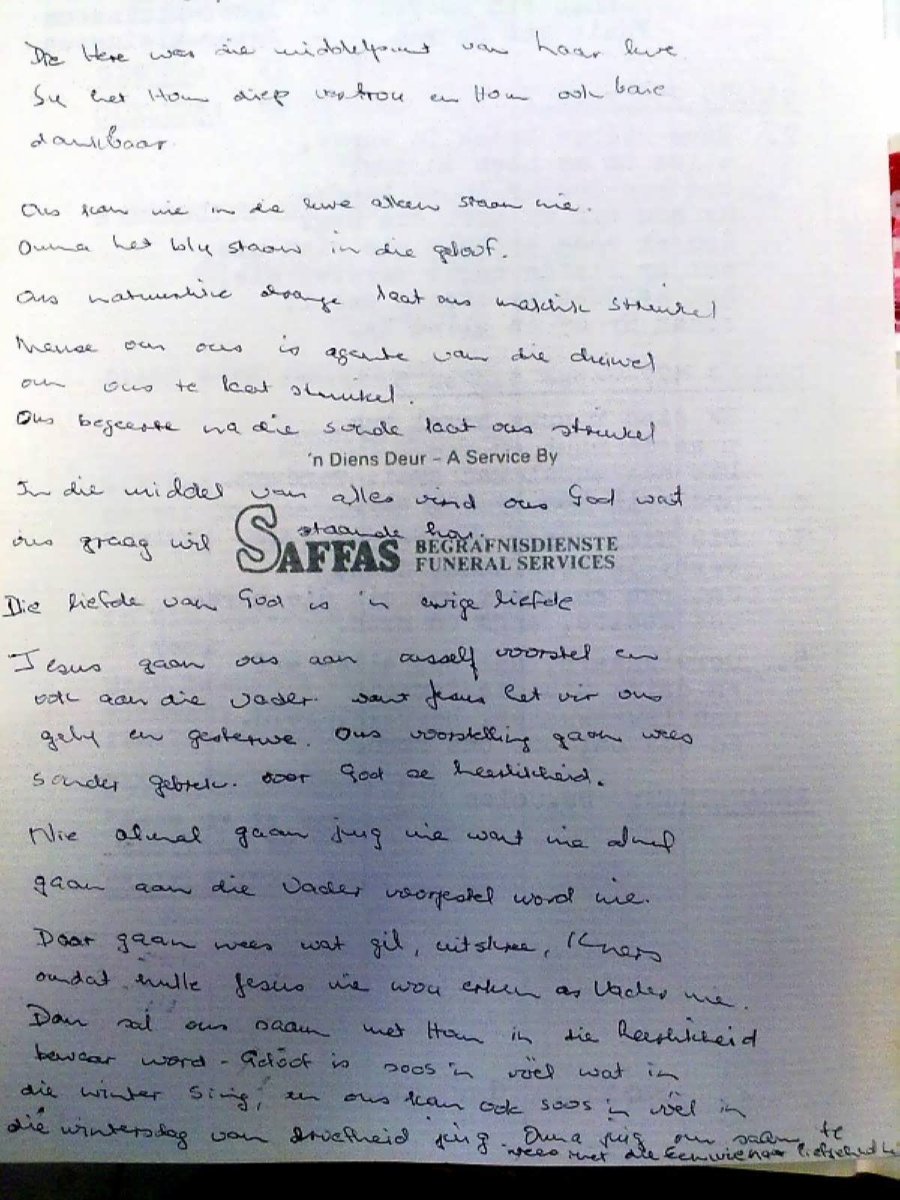 Die Here was die middelpunt van haar lewe
Sy het Hom diep vertrou en Hom ook baie
dankbaar.
Ons kan nie in die lewe alleen staan nie.
Ouma het bly staan in die geloof.
Ons natuurlike drange laat ons maklik struikel
Mense om ons is agente van die duiwel
om ons te laat struikel.
Ons begeerte na die sonde laat ons struikel
'n Diens Deur – A Service By
In die middel van alles vind ons God wat
ons graag wil staande hou.
SAFFAS BEGRAFNISDIENSTE
FUNERAL SERVICES
Die liefde van God is 'n ewige liefde
Jesus gaan ons aan ousself voorstel en
ook aan die Vader. want Jesus het vir ons
gely en gesterwe. Ons voorstelling gaan wees
sonder gebrek. voor God se heerlikheid.
Nie almal gaan juig nie want nie almal
gaan aan die Vader voorgestel word nie.
Daar gaan wees wat gil, uitskree, kners
omdat hulle Jesus nie wou erken as Vader nie.
Dan sal ons saam met Hom in die heerlikheid
bewaar word - Geloof is soos 'n voël wat in
die winter sing, en ons kan ook soos 'n voël in
die wintersdag van droefheid juig. Ouma juig om saam te
wees met die Een wie haar liefgehad